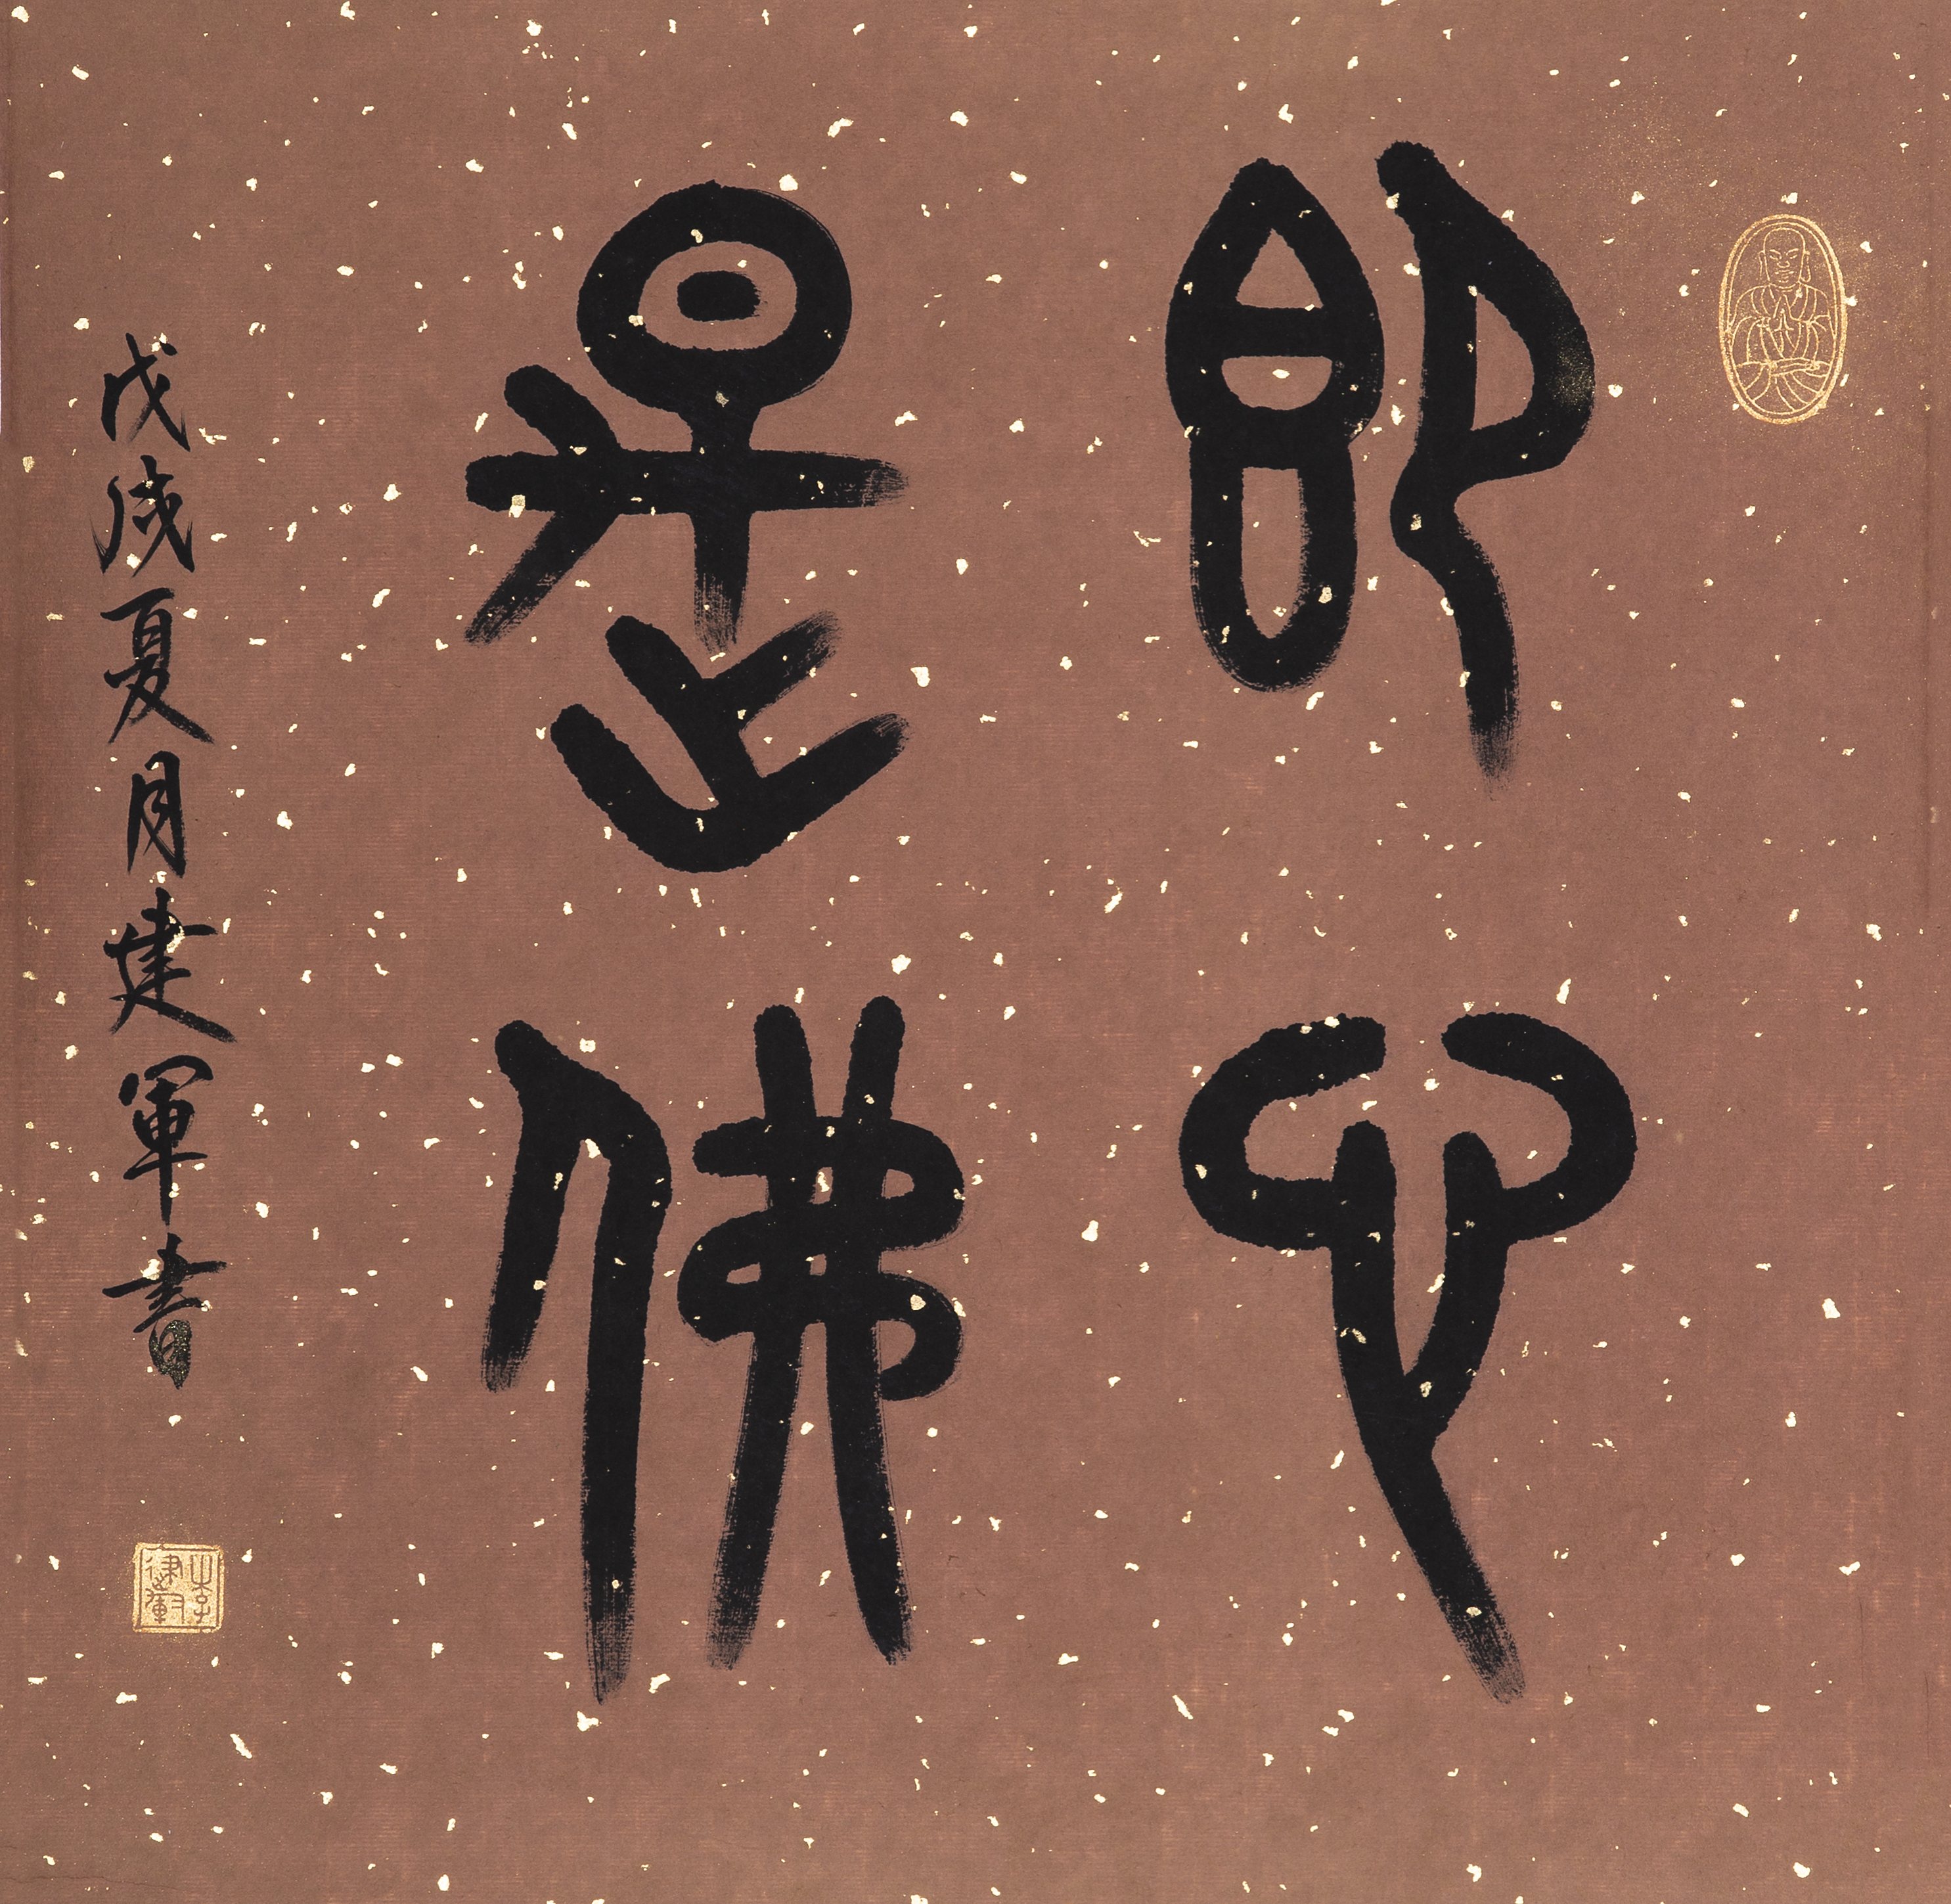 即心
是佛
戊戌夏月建军書